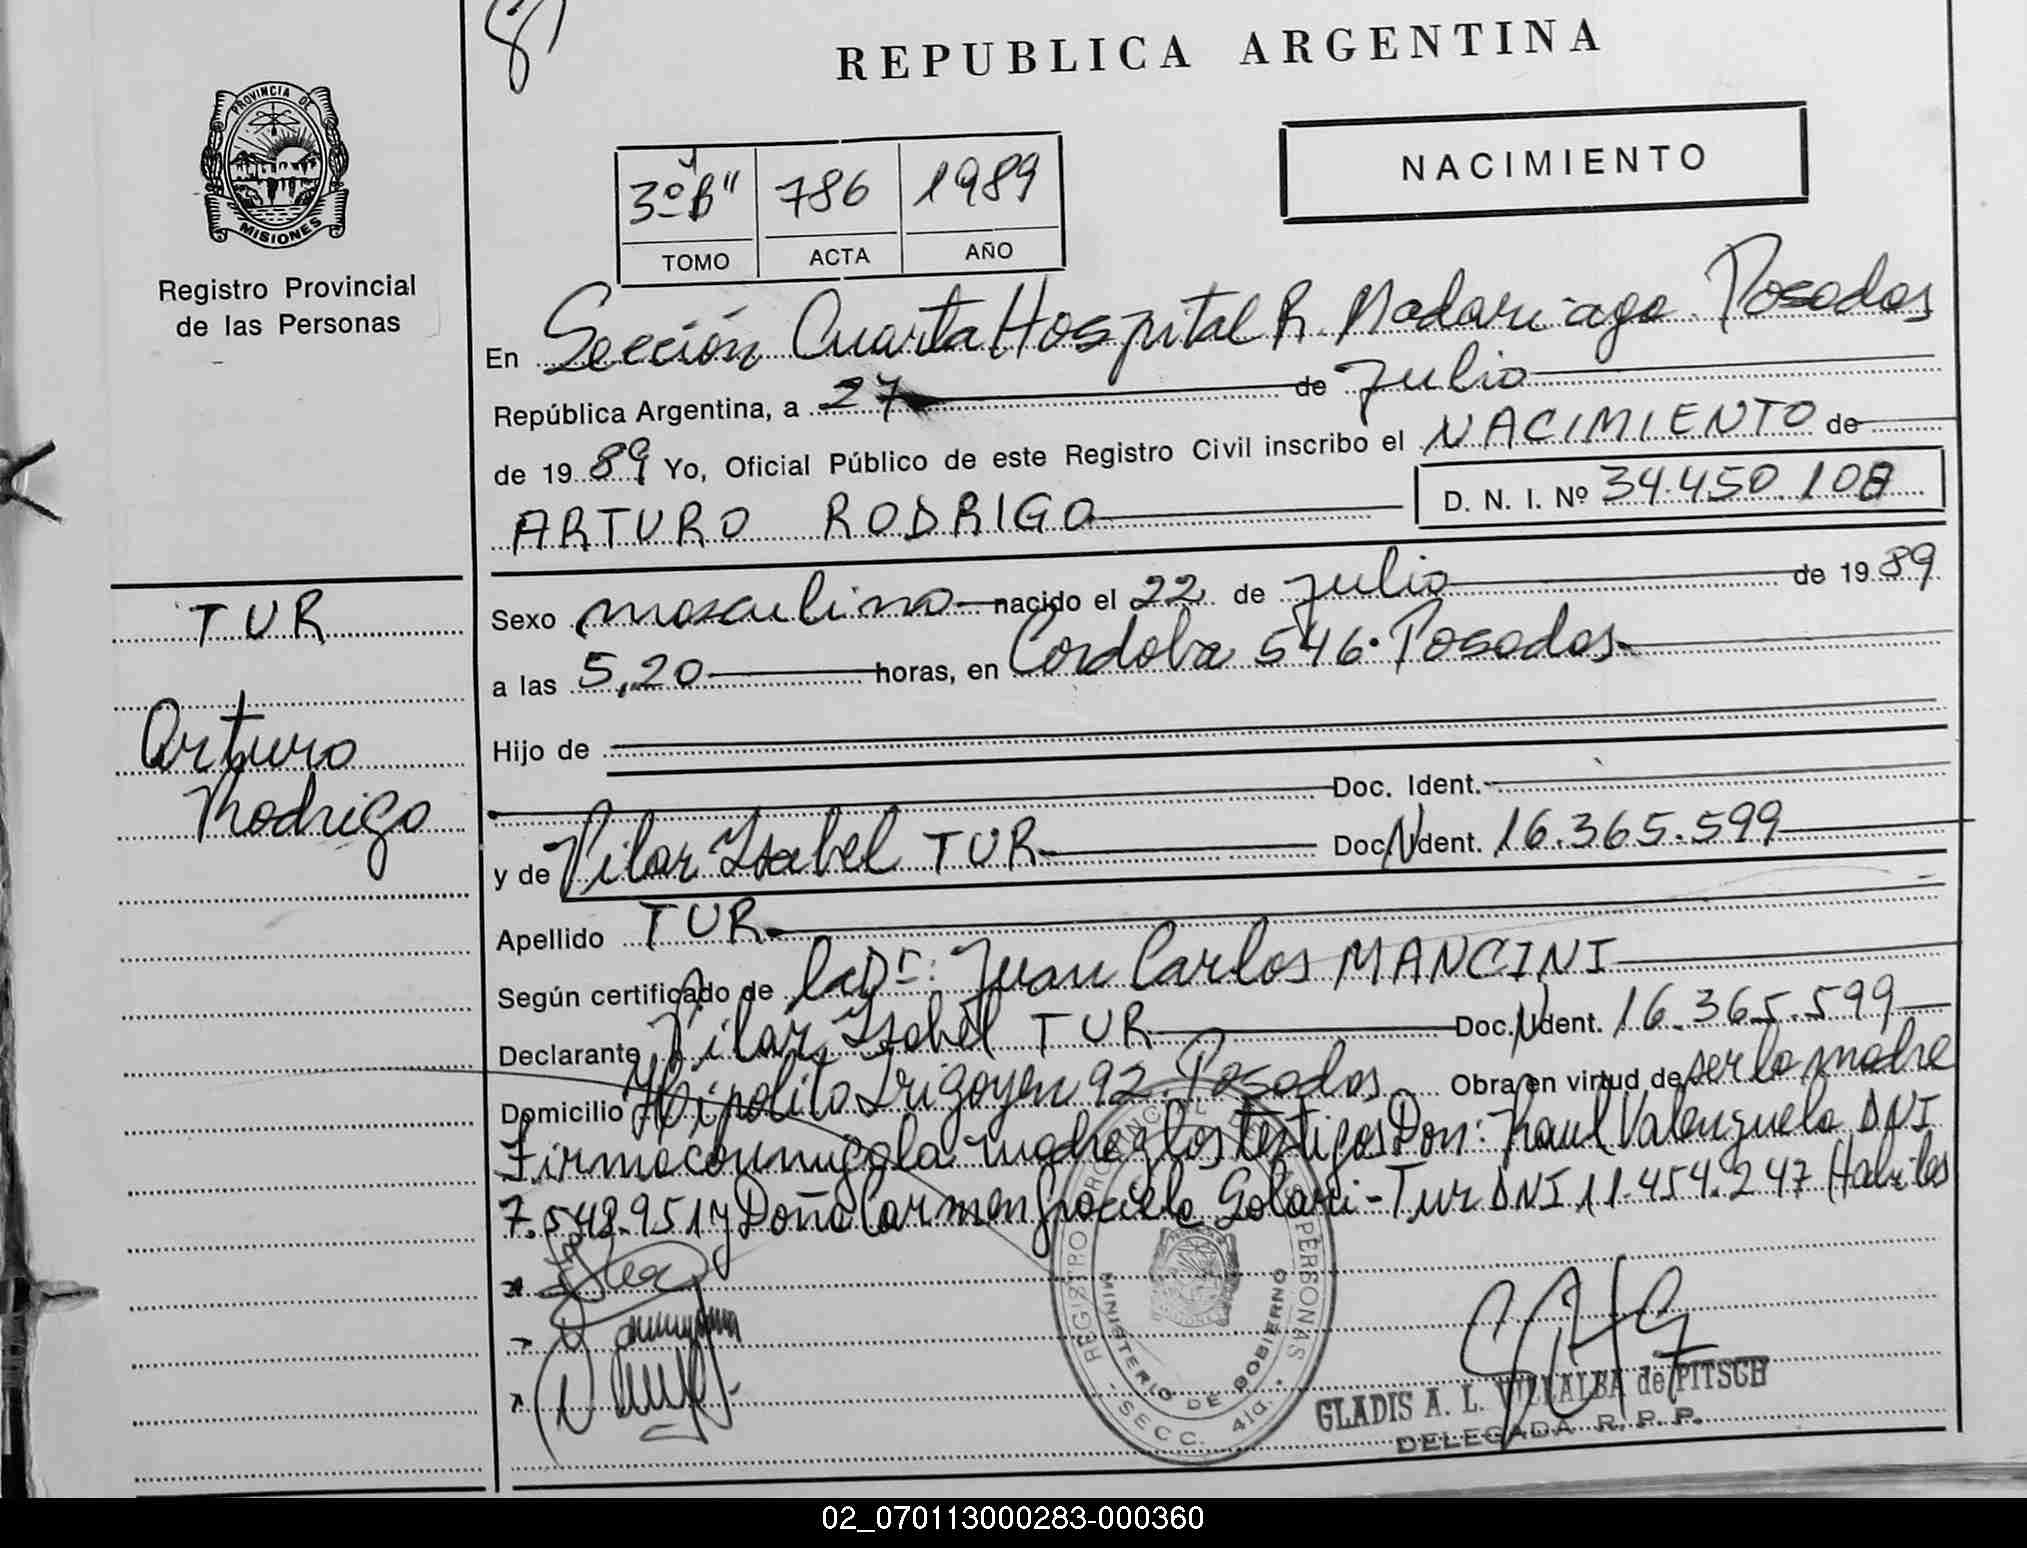 REPUBLICA ARGENTINA
PROVINCIA DE
MISIONES
Registro Provincial
de las Personas
3º "B" 786 1989
TOMO ACTA AÑO
NACIMIENTO
En Sección Cuarta Hospital R. Madariaga. Posadas
República Argentina, a 27 de Julio
de 19 89 Yo, Oficial Público de este Registro Civil inscribo el NACIMIENTO de
ARTURO RODRIGO D. N. I. Nº 34.450.108
TUR
Arturo
Rodrigo
Sexo masculino nacido el 22 de Julio de 19 89
a las 5,20 horas, en Cordoba 546. Posadas
Hijo de
Doc. Ident.
y de Pilar Isabel TUR Doc. N Ident. 16.365.599
Apellido TUR
Según certificado de Dr: Juan Carlos MANCINI
Declarante Pilar Isabel TUR Doc. N Ident. 16.365.599
Domicilio Hipolito Irigoyen 92. Posadas Obra en virtud de ser la madre
Firma conmigo la madre y los testigos Don: Raul Valenzuela DNI
7.548.951 y Doña Carmen Graciela Solari - Tur DNI 11.454.247 Habiles
REGISTRO PROVINCIAL DE LAS PERSONAS
MINISTERIO DE GOBIERNO
- SECC. 4ta. -
GLADIS A. L. VILLALBA de PITSCH
DELEGADA R. P. P.
02_070113000283-000360